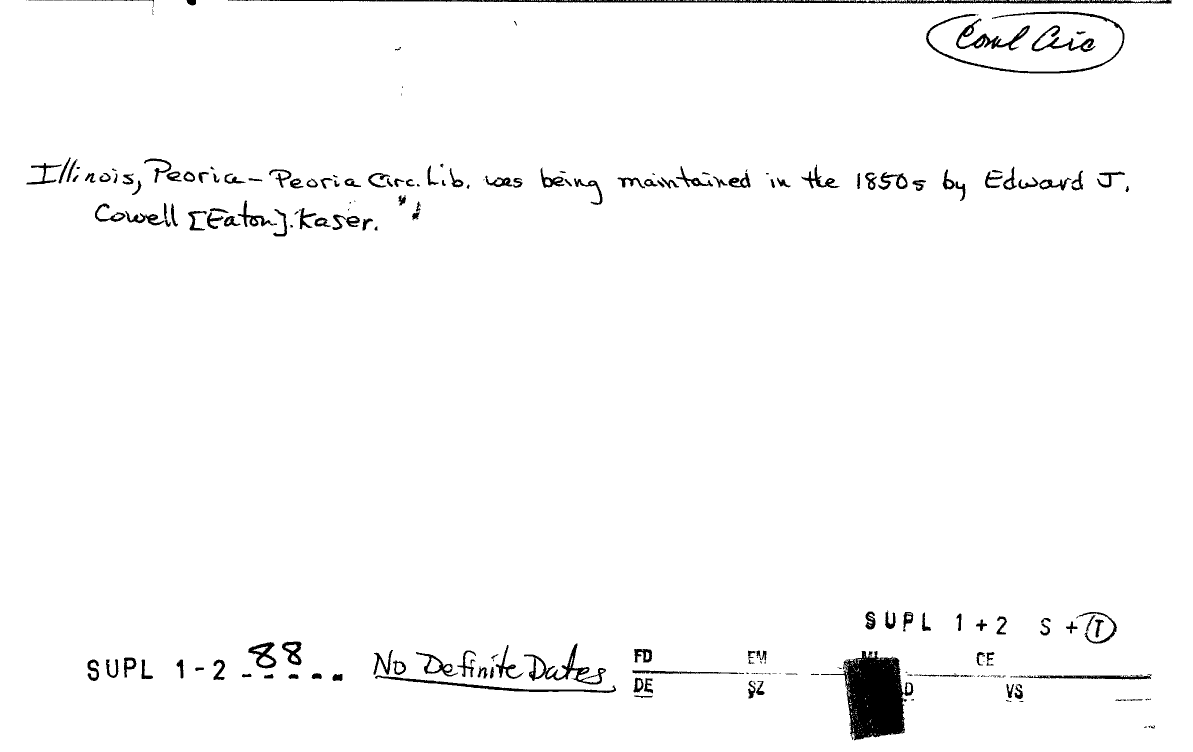 Coml Circ
Illinois, Peoria - Peoria Circ. Lib. was being maintained in the 1850s by Edward J.
Cowell [Eaton]. Kaser.
SUPL 1 + 2 S + T
SUPL 1 - 2 88 No Definite Dates
FD EM CE
DE SZ D VS